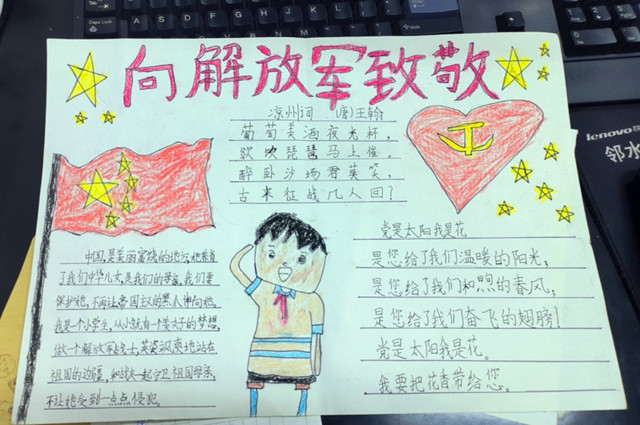 向解放军致敬
凉州词 (唐)王翰
葡萄美酒夜光杯,
欲饮琵琶马上催。
醉卧沙场君莫笑,
古来征战几人回?
中国,是美丽富饶的地方,她养育
了我们中华儿女,是我们的母亲,我们要
保护她,不再让帝国主义的黑人伸向她。
我是一个小学生,从小就有一个美好的梦想,
做一个解放军战士,英姿飒爽地站在
祖国的边疆,和战友一起守卫祖国母亲,
不让她受到一点点侵犯。
党是太阳我是花
是您给了我们温暖的阳光,
是您给了我们和煦的春风,
是您给了我们奋飞的翅膀!
党是太阳我是花。
我要把花香带给您。
lenovo
邻水